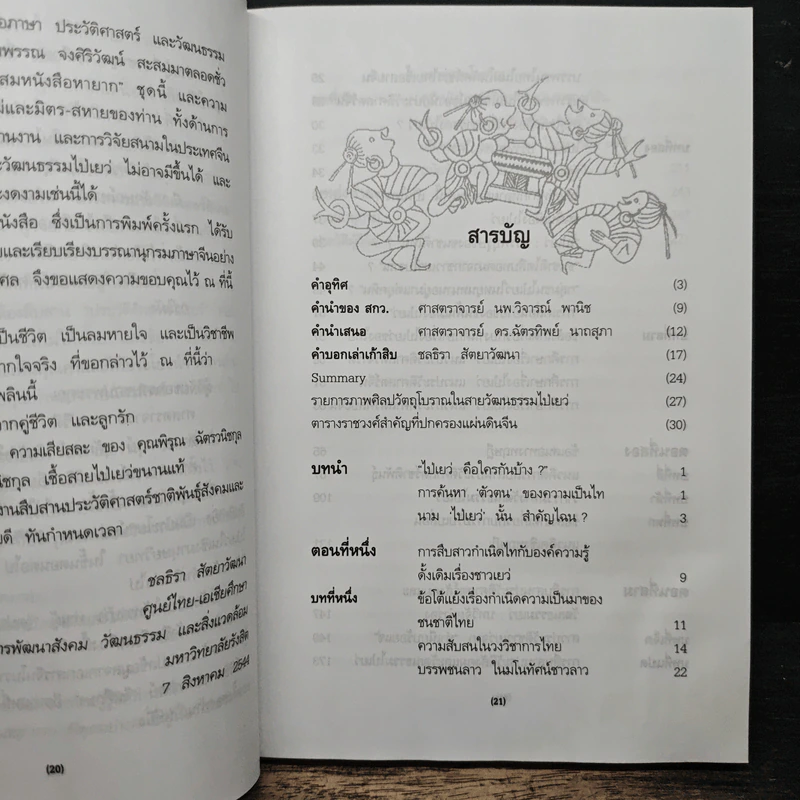 อภาษา ประวัติศาสตร์ และวัฒนธรรม
พรรณ จงศิริวัฒน์ สะสมมาตลอดชั่ว
สมหนังสือหายาก” ชุดนี้ และความ
และมิตร-สหายของท่าน ทั้งด้านการ
านงาน และการวิจัยสนามในประเทศจีน
ะวัฒนธรรมไป่เยว่ ไม่อาจมีขึ้นได้ และ
ะงดงามเช่นนี้ได้
นังสือ ซึ่งเป็นการพิมพ์ครั้งแรก ได้รับ
และเรียบเรียงบรรณานุกรมภาษาจีนอย่าง
ศล จึงขอแสดงความขอบคุณไว้ ณ ที่นี้
ป็นชีวิต เป็นลมหายใจ และเป็นวิชาชีพ
ากใจจริง ที่ขอกล่าวไว้ ณ ที่นี้ว่า
พลินนี้
ากคู่ชีวิต และลูกรัก
ความเสียสละ ของ คุณพิรุณ ฉัตรวนิชกุล
ชกุล เชื้อสายไป่เยว่ขนานแท้
งานสืบสานประวัติศาสตร์ชาติพันธุ์สังคมและ
ดี ทันกำหนดเวลา
ชลธิรา สัตยาวัฒนา
ศูนย์ไทย-เอเชียศึกษา
ารพัฒนาสังคม วัฒนธรรม และสิ่งแวดล้อม
มหาวิทยาลัยรังสิต
7 สิงหาคม 2544
(20)
สารบัญ
คำอุทิศ (3)
คำนำของ สกว. ศาสตราจารย์ นพ.วิจารณ์ พานิช (9)
คำนำเสนอ ศาสตราจารย์ ดร.ฉัตรทิพย์ นาถสุภา (12)
คำบอกเล่าเก้าสิบ ชลธิรา สัตยาวัฒนา (17)
Summary (24)
รายการภาพศิลปวัตถุโบราณในสายวัฒนธรรมไป่เยว่ (27)
ตารางราชวงศ์สำคัญที่ปกครองแผ่นดินจีน (30)
บทนำ “ไป่เยว่ คือใครกันบ้าง ?” 1
การค้นหา ‘ตัวตน’ ของความเป็นไท 1
นาม ‘ไป่เยว่’ นั้น สำคัญไฉน ? 3
ตอนที่หนึ่ง การสืบสาวกำเนิดไทกับองค์ความรู้
ดั้งเดิมเรื่องชาวเยว่ 9
บทที่หนึ่ง ข้อโต้แย้งเรื่องกำเนิดความเป็นมาของ
ชนชาติไทย 11
ความสับสนในวงวิชาการไทย 14
บรรพชนลาว ในมโนทัศน์ชาวลาว 22
(21)